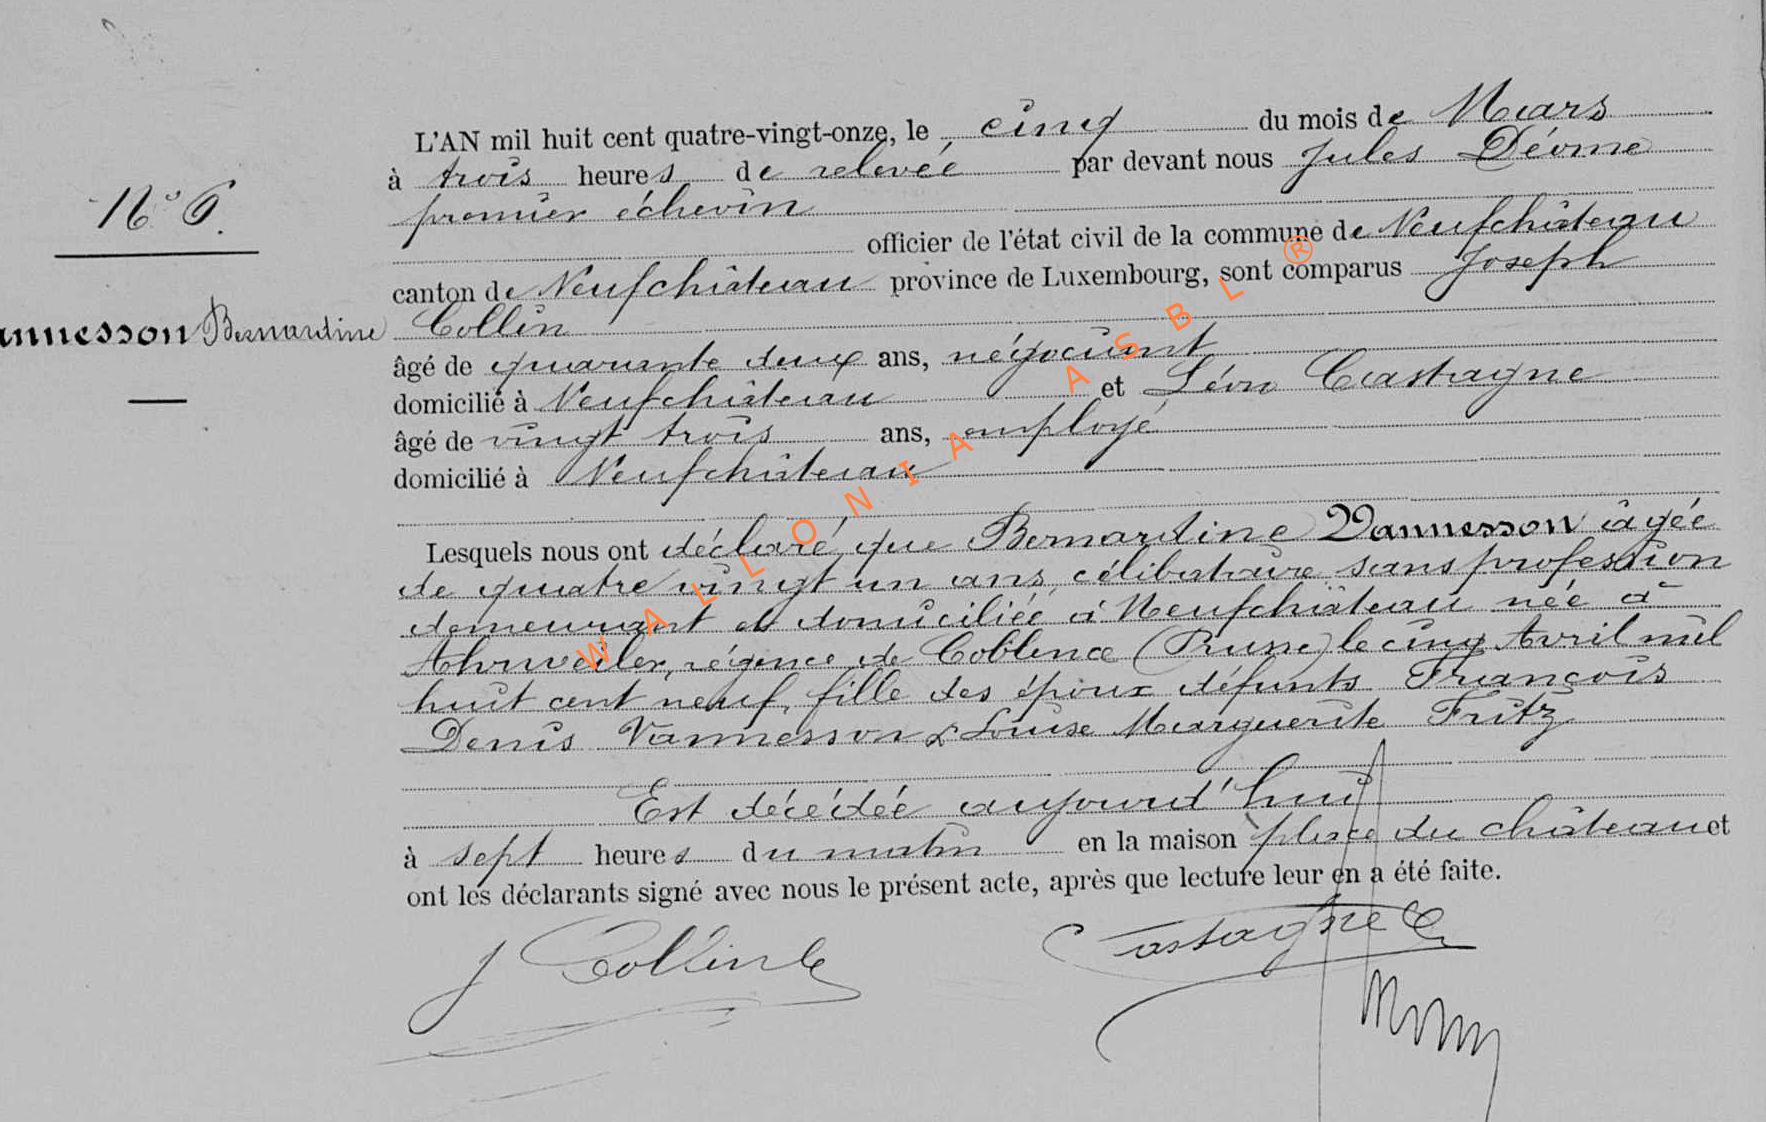 L'AN mil huit cent quatre-vingt-onze, le cinq du mois de Mars
à trois heures de relevée par devant nous Jules Déome
premier échevin
N° 6.
officier de l'état civil de la commune de Neufchâteau
canton de Neufchâteau province de Luxembourg, sont comparus Joseph
annesson Bernardine
Collin
âgé de quarante deux ans, négociant
domicilié à Neufchâteau et Léon Castagne
âgé de vingt trois ans, employé
domicilié à Neufchâteau
Lesquels nous ont déclaré que Bernardine Vannesson âgée
de quatre vingt un ans, célibataire sans profession
demeurant et domiciliée à Neufchâteau née à
Ahrweiler, régence de Coblence (Prusse) le cinq Avril mil
huit cent neuf, fille des époux défunts François
Denis Vannesson & Louise Marguerite Fritz
Est décédée aujourd'hui
à sept heures du matin en la maison place du château et
ont les déclarants signé avec nous le présent acte, après que lecture leur en a été faite.
J Collin
Castagne
WALLONIA ASBL ®